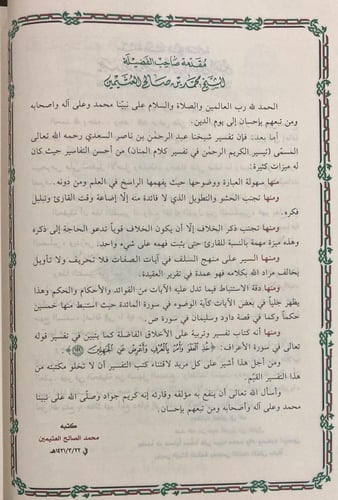 مقدمة صاحب الفضيلة
الشيخ محمد بن صالح العثيمين
الحمد لله رب العالمين والصلاة والسلام على نبيّنا محمد وعلى آله وأصحابه
ومن تبعهم بإحسان إلى يوم الدين.
أما بعد: فإن تفسير شيخنا عبد الرحمٰن بن ناصر السعدي رحمه الله تعالى
المسمّى (تيسير الكريم الرحمٰن في تفسير كلام المنان) من أحسن التفاسير حيث كان
له ميزات كثيرة:
منها سهولة العبارة ووضوحها حيث يفهمها الراسخ في العلم ومن دونه.
ومنها تجنب الحشو والتطويل الذي لا فائدة منه إلّا إضاعة وقت القارئ وتبلبل
فكره.
ومنها تجنب ذكر الخلاف إلّا أن يكون الخلاف قوياً تدعو الحاجة إلى ذكره
وهذه ميزة مهمة بالنسبة للقارئ حتى يثبت فهمه على شيء واحد.
ومنها السير على منهج السلف في آيات الصفات فلا تحريف ولا تأويل
يخالف مراد الله بكلامه فهو عمدة في تقرير العقيدة.
ومنها دقة الاستنباط فيما تدل عليه الآيات من الفوائد والأحكام والحكم وهذا
يظهر جليّاً في بعض الآيات كآية الوضوء في سورة المائدة حيث استنبط منها خمسين
حكماً وكما في قصة داود وسليمان في سورة ص.
ومنها أنه كتاب تفسير وتربية على الأخلاق الفاضلة كما يتبيّن في تفسير قوله
تعالى في سورة الأعراف: ﴿خُذِ الْعَفْوَ وَأْمُرْ بِالْعُرْفِ وَأَعْرِضْ عَنِ الْجَاهِلِينَ ﴾.
ومن أجل هذا أشير على كل مريد لاقتناء كتب التفسير أن لا تخلو مكتبته من
هذا التفسير القيّم.
وأسأل الله تعالى أن ينفع به مؤلفه وقارئه إنه كريم جواد وصلّى الله على نبيّنا
محمد وعلى آله وأصحابه ومن تبعهم بإحسان.
كتبه
محمد الصالح العثيمين